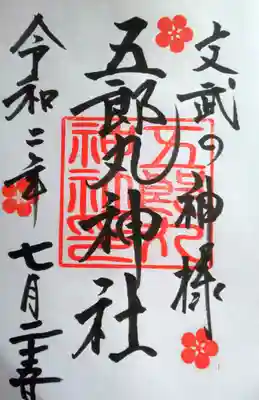 文武の神様
五郎丸神社
令和二年 七月二十五日